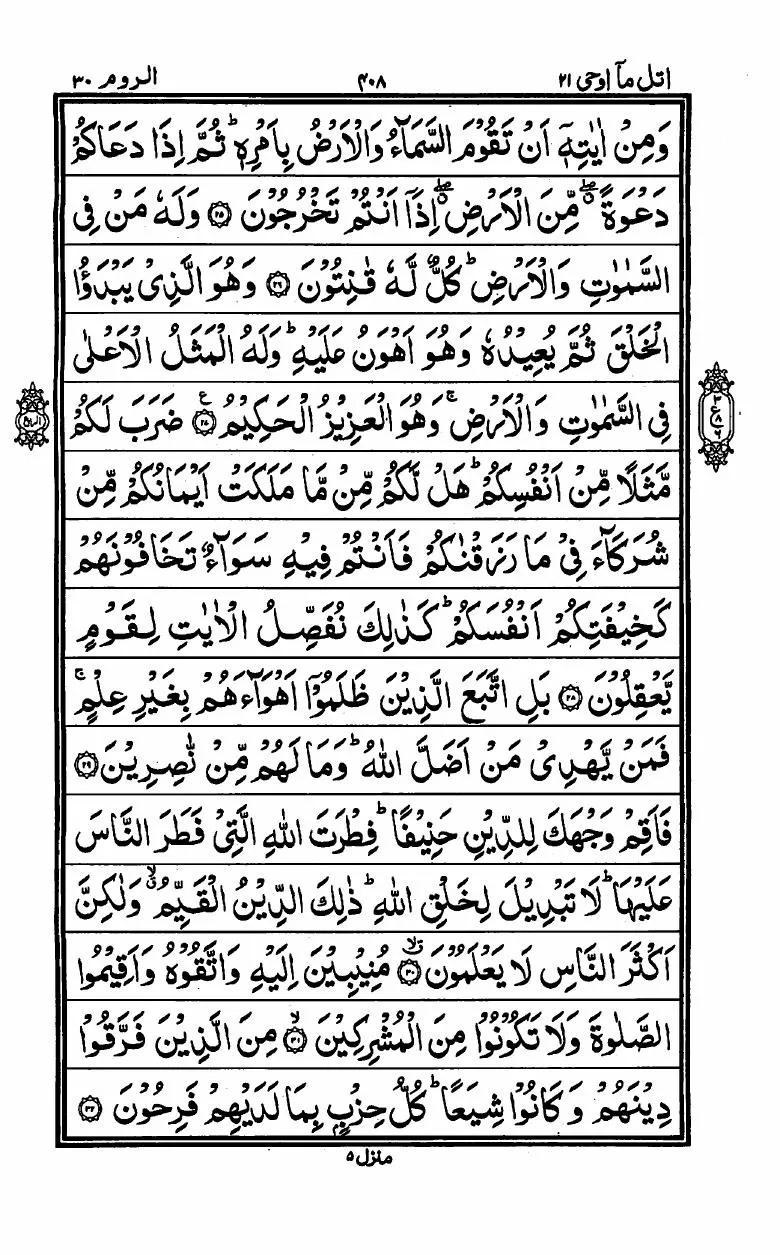 اتل مآ اوحی ۲۱ ۴۰۸ الروم ۳۰
وَمِنْ اٰيٰتِهٖۤ اَنْ تَقُوْمَ السَّمَآءُ وَالْاَرْضُ بِاَمْرِهٖؕ ثُمَّ اِذَا دَعَاكُمْ
دَعْوَةً ۖۗ مِّنَ الْاَرْضِ ۖۗ اِذَاۤ اَنْتُمْ تَخْرُجُوْنَ ۝۲۵ وَلَهٗ مَنْ فِی
السَّمٰوٰتِ وَالْاَرْضِؕ كُلٌّ لَّهٗ قٰنِتُوْنَ ۝۲۶ وَهُوَ الَّذِیْ يَبْدَؤُا
الْخَلْقَ ثُمَّ يُعِيْدُهٗ وَهُوَ اَهْوَنُ عَلَيْهِؕ وَلَهُ الْمَثَلُ الْاَعْلٰی
فِی السَّمٰوٰتِ وَالْاَرْضِۚ وَهُوَ الْعَزِيْزُ الْحَكِيْمُ ۝۲۷ ع ضَرَبَ لَكُمْ
مَّثَلًا مِّنْ اَنْفُسِكُمْؕ هَلْ لَّكُمْ مِّنْ مَّا مَلَكَتْ اَيْمَانُكُمْ مِّنْ
شُرَكَآءَ فِیْ مَا رَزَقْنٰكُمْ فَاَنْتُمْ فِيْهِ سَوَآءٌ تَخَافُوْنَهُمْ
كَخِيْفَتِكُمْ اَنْفُسَكُمْؕ كَذٰلِكَ نُفَصِّلُ الْاٰيٰتِ لِقَوْمٍ
يَّعْقِلُوْنَ ۝۲۸ بَلِ اتَّبَعَ الَّذِيْنَ ظَلَمُوْۤا اَهْوَآءَهُمْ بِغَيْرِ عِلْمٍۚ
فَمَنْ يَّهْدِیْ مَنْ اَضَلَّ اللّٰهُؕ وَمَا لَهُمْ مِّنْ نّٰصِرِيْنَ ۝۲۹
فَاَقِمْ وَجْهَكَ لِلدِّيْنِ حَنِيْفًاؕ فِطْرَتَ اللّٰهِ الَّتِیْ فَطَرَ النَّاسَ
عَلَيْهَاؕ لَا تَبْدِيْلَ لِخَلْقِ اللّٰهِؕ ذٰلِكَ الدِّيْنُ الْقَيِّمُۙ وَلٰكِنَّ
اَكْثَرَ النَّاسِ لَا يَعْلَمُوْنَ ۝۳۰ۙ مُنِيْبِيْنَ اِلَيْهِ وَاتَّقُوْهُ وَاَقِيْمُوا
الصَّلٰوةَ وَلَا تَكُوْنُوْا مِنَ الْمُشْرِكِيْنَ ۝۳۱ۙ مِنَ الَّذِيْنَ فَرَّقُوْا
دِيْنَهُمْ وَكَانُوْا شِيَعًاؕ كُلُّ حِزْبٍۭ بِمَا لَدَيْهِمْ فَرِحُوْنَ ۝۳۲
منزل ۵